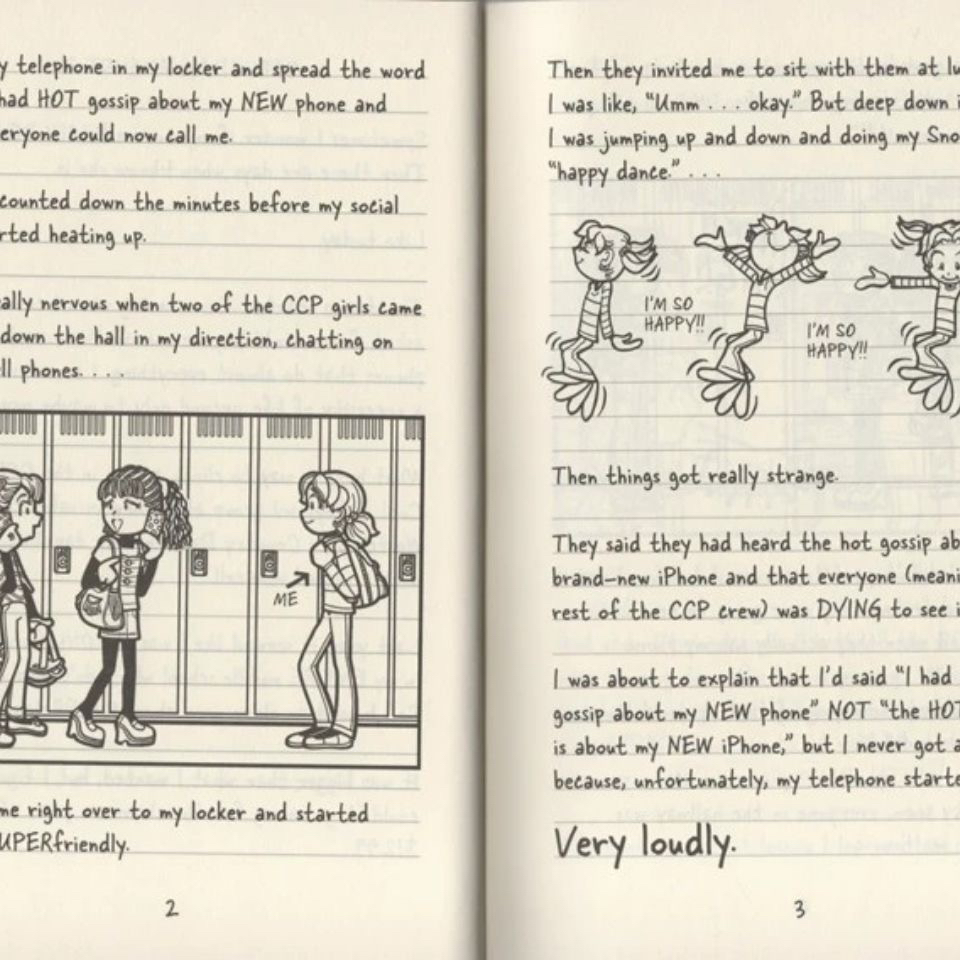 y telephone in my locker and spread the word
had HOT gossip about my NEW phone and
eryone could now call me.
counted down the minutes before my social
rted heating up.
ally nervous when two of the CCP girls came
down the hall in my direction, chatting on
ll phones. . .
ME
me right over to my locker and started
UPERfriendly.
2
Then they invited me to sit with them at lu
I was like, “Umm . . . okay.” But deep down i
I was jumping up and down and doing my Sno
“happy dance.” . . .
I'M SO
HAPPY!!
I'M SO
HAPPY!!
Then things got really strange.
They said they had heard the hot gossip ab
brand-new iPhone and that everyone (meani
rest of the CCP crew) was DYING to see i
I was about to explain that I’d said “I had
gossip about my NEW phone” NOT “the HOT
is about my NEW iPhone,” but I never got a
because, unfortunately, my telephone starte
Very loudly.
3